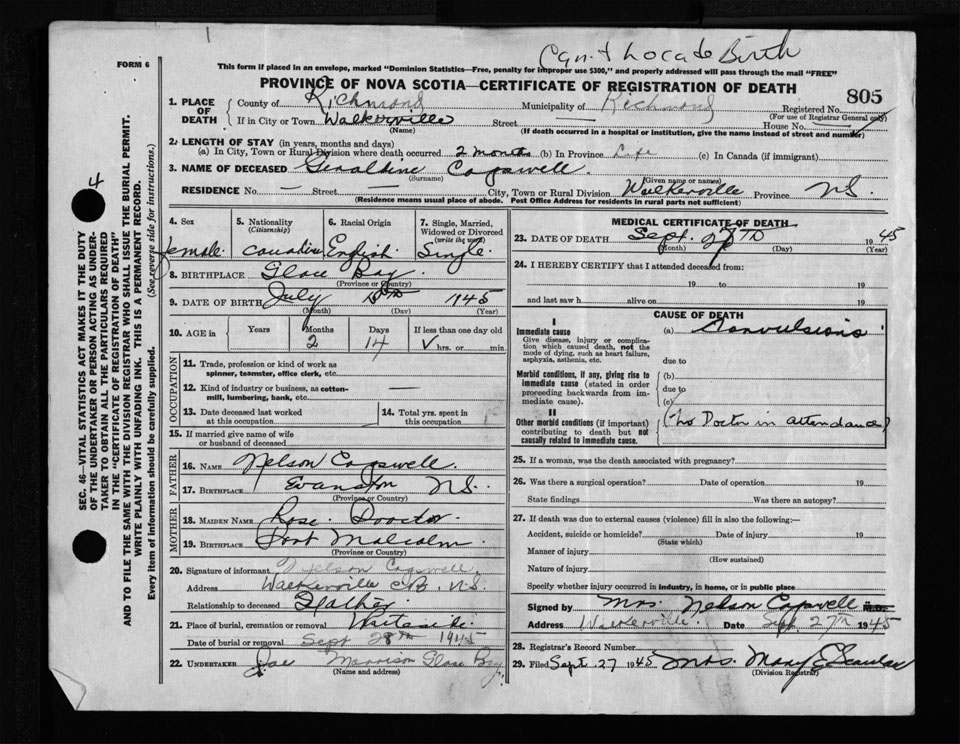 Cgn. + Locade Birth
FORM 6
This form if placed in an envelope, marked "Dominion Statistics—Free, penalty for improper use $300," and properly addressed will pass through the mail "FREE"
PROVINCE OF NOVA SCOTIA—CERTIFICATE OF REGISTRATION OF DEATH
805
1. PLACE OF DEATH County of Richmond Municipality of Richmond Registered No.
(For use of Registrar General only)
If in City or Town Walkerville Street — House No. —
(Name) (If death occurred in a hospital or institution, give the name instead of street and number)
2. LENGTH OF STAY (in years, months and days)
(a) In City, Town or Rural Division where death occurred 2 months (b) In Province Life (c) In Canada (if immigrant)
3. NAME OF DECEASED Geraldine Cogswell.
(Surname) (Given name or names)
RESIDENCE No. — Street — City, Town or Rural Division Walkerville Province N.S.
(Residence means usual place of abode. Post Office Address for residents in rural parts not sufficient)
4. Sex 5. Nationality 6. Racial Origin 7. Single, Married, Widowed or Divorced
(Citizenship) (write the word)
female. Canadian English Single.
8. BIRTHPLACE Glace Bay
(Province or Country)
9. DATE OF BIRTH July 1945
(Month) (Day) (Year)
10. AGE in Years Months Days If less than one day old
2 14 hrs. or min
OCCUPATION
11. Trade, profession or kind of work as spinner, teamster, office clerk, etc.
12. Kind of industry or business, as cotton-mill, lumbering, bank, etc. —
13. Date deceased last worked at this occupation 14. Total yrs. spent in this occupation
15. If married give name of wife or husband of deceased
FATHER
16. NAME Nelson Cogswell.
17. BIRTHPLACE Evanston N.S.
(Province or Country)
MOTHER
18. MAIDEN NAME Rose. Proctor.
19. BIRTHPLACE Port Malcolm.
(Province or Country)
20. Signature of informant Nelson Cogswell.
Address Walkerville C.B. N.S.
Relationship to deceased Father
21. Place of burial, cremation or removal Whiteside.
Date of burial or removal Sept 28th 1945
22. UNDERTAKER Joe Morrison Glace Bay
(Name and address)
MEDICAL CERTIFICATE OF DEATH
23. DATE OF DEATH Sept. 27TH 1945
(Month) (Day) (Year)
24. I HEREBY CERTIFY that I attended deceased from:
19 to 19
and last saw h alive on 19
CAUSE OF DEATH
I
Immediate cause (a) Convulsions
Give disease, injury or complication which caused death, not the mode of dying, such as heart failure, asphyxia, asthenia, etc.
due to
Morbid conditions, if any, giving rise to immediate cause (stated in order proceeding backwards from immediate cause). (b)
due to
(c)
II
Other morbid conditions (if important) contributing to death but not causally related to immediate cause.
(No Doctor in attendance)
25. If a woman, was the death associated with pregnancy?
26. Was there a surgical operation? Date of operation 19
State findings Was there an autopsy?
27. If death was due to external causes (violence) fill in also the following:—
Accident, suicide or homicide? Date of injury 19
(State which)
Manner of injury
(How sustained)
Nature of injury
Specify whether injury occurred in industry, in home, or in public place
Signed by Mrs. Nelson Cogswell M.D.
Address Walkerville. Date Sept 27th 1945
28. Registrar's Record Number
29. Filed Sept. 27 1945 Mrs. Mary E
(Division Registrar)
4
SEC. 46—VITAL STATISTICS ACT MAKES IT THE DUTY
OF THE UNDERTAKER OR PERSON ACTING AS UNDER-
TAKER TO OBTAIN ALL THE PARTICULARS REQUIRED
IN THE "CERTIFICATE OF REGISTRATION OF DEATH"
AND TO FILE THE SAME WITH THE DIVISION REGISTRAR WHO SHALL ISSUE THE BURIAL PERMIT.
WRITE PLAINLY WITH UNFADING INK. THIS IS A PERMANENT RECORD.
Every item of information should be carefully supplied. (See reverse side for instructions.)